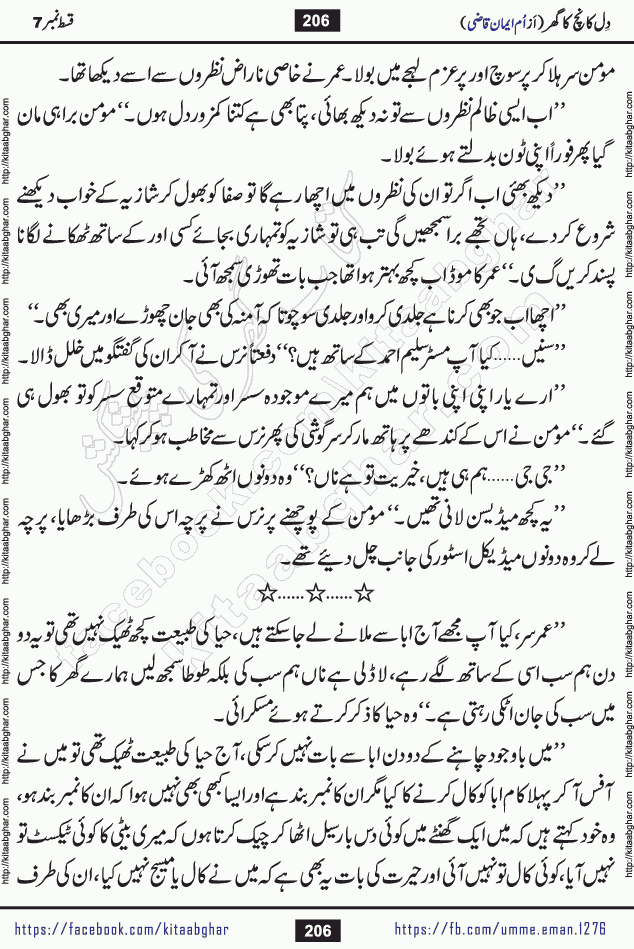 دِل کانچ کا گھر (از اُم ایمان قاضی)
206
قسط نمبر 7
مؤمن سر ہلا کر پر سوچ اور پر عزم لہجے میں بولا۔ عمر نے خاصی ناراض نظروں سے اسے دیکھا تھا۔
’’اب ایسی ظالم نظروں سے تو نہ دیکھ بھائی، پتا بھی ہے کتنا کمزور دل ہوں۔‘‘ مؤمن برا ہی مان
گیا پھر فوراً اپنی ٹون بدلتے ہوئے بولا۔
’’دیکھ بھئی اب اگر تو ان کی نظروں میں اچھا رہے گا تو صفا کو بھول کر شازیہ کے خواب دیکھنے
شروع کر دے، ہاں تجھے برا سمجھیں گی تب ہی تو شازیہ کو تمہاری بجائے کسی اور کے ساتھ ٹھکانے لگانا
پسند کریں گی۔‘‘ عمر کا موڈ اب کچھ بہتر ہوا تھا جب بات تھوڑی سمجھ آئی۔
’’اچھا اب جو بھی کرنا ہے جلدی کرو اور جلدی سوچو تا کہ آمنہ کی بھی جان چھوڑے اور میری بھی۔‘‘
’’سنیں......کیا آپ مسٹر سلیم احمد کے ساتھ ہیں؟‘‘ دفعتاً نرس نے آ کر ان کی گفتگو میں خلل ڈالا۔
’’ارے یار اپنی اپنی باتوں میں ہم میرے موجودہ سسر اور تمہارے متوقع سسر کو تو بھول ہی
گئے۔‘‘ مؤمن نے اس کے کندھے پر ہاتھ مار کر سرگوشی کی پھر نرس سے مخاطب ہو کر کہا۔
’’جی جی......ہم ہی ہیں، خیریت تو ہے ناں؟‘‘ وہ دونوں اٹھ کھڑے ہوئے۔
’’یہ کچھ میڈیسن لانی تھیں۔‘‘ مؤمن کے پوچھنے پر نرس نے پرچہ اس کی طرف بڑھایا، پرچہ
لے کر وہ دونوں میڈیکل اسٹور کی جانب چل دیئے تھے۔
☆......☆......☆
’’عمر سر، کیا آپ مجھے آج ابا سے ملانے لے جا سکتے ہیں، حیا کی طبیعت کچھ ٹھیک نہیں تھی تو یہ دو
دن ہم سب اسی کے ساتھ لگے رہے، لاڈلی ہے ناں ہم سب کی بلکہ طوطا سمجھ لیں ہمارے گھر کا جس
میں سب کی جان اٹکی رہتی ہے۔‘‘ وہ حیا کا ذکر کرتے ہوئے مسکرائی۔
’’میں باوجود چاہنے کے دو دن ابا سے بات نہیں کر سکی، آج حیا کی طبیعت ٹھیک تھی تو میں نے
آفس آ کر پہلا کام ابا کو کال کرنے کا کیا مگر ان کا نمبر بند ہے اور ایسا کبھی بھی نہیں ہوا کہ ان کا نمبر بند ہو،
وہ خود کہتے ہیں کہ میں ایک گھنٹے میں کوئی دس بار سیل اٹھا کر چیک کرتا ہوں کہ میری بیٹی کا کوئی ٹیکسٹ تو
نہیں آیا، کوئی کال تو نہیں آئی اور حیرت کی بات یہ بھی ہے کہ میں نے کال یا میسج نہیں کیا، ان کی طرف
http://kitaabghar.com
کتاب گھر کی پیشکش
facebook.com/kitaabghar
kitaabghar.com
https://facebook.com/kitaabghar
206
https://fb.com/umme.eman.1276